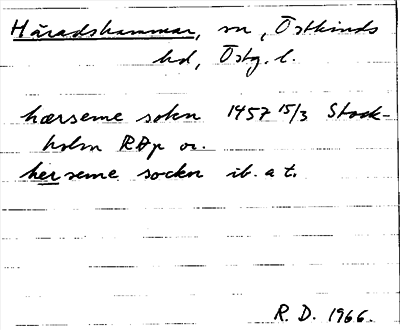 Häradshammar, sn, Östkinds
hd, Östg. l.
hærseme sokn 1457 15/3 Stock-
holm RAp or.
herseme socken ib. a t.
R. D. 1966.